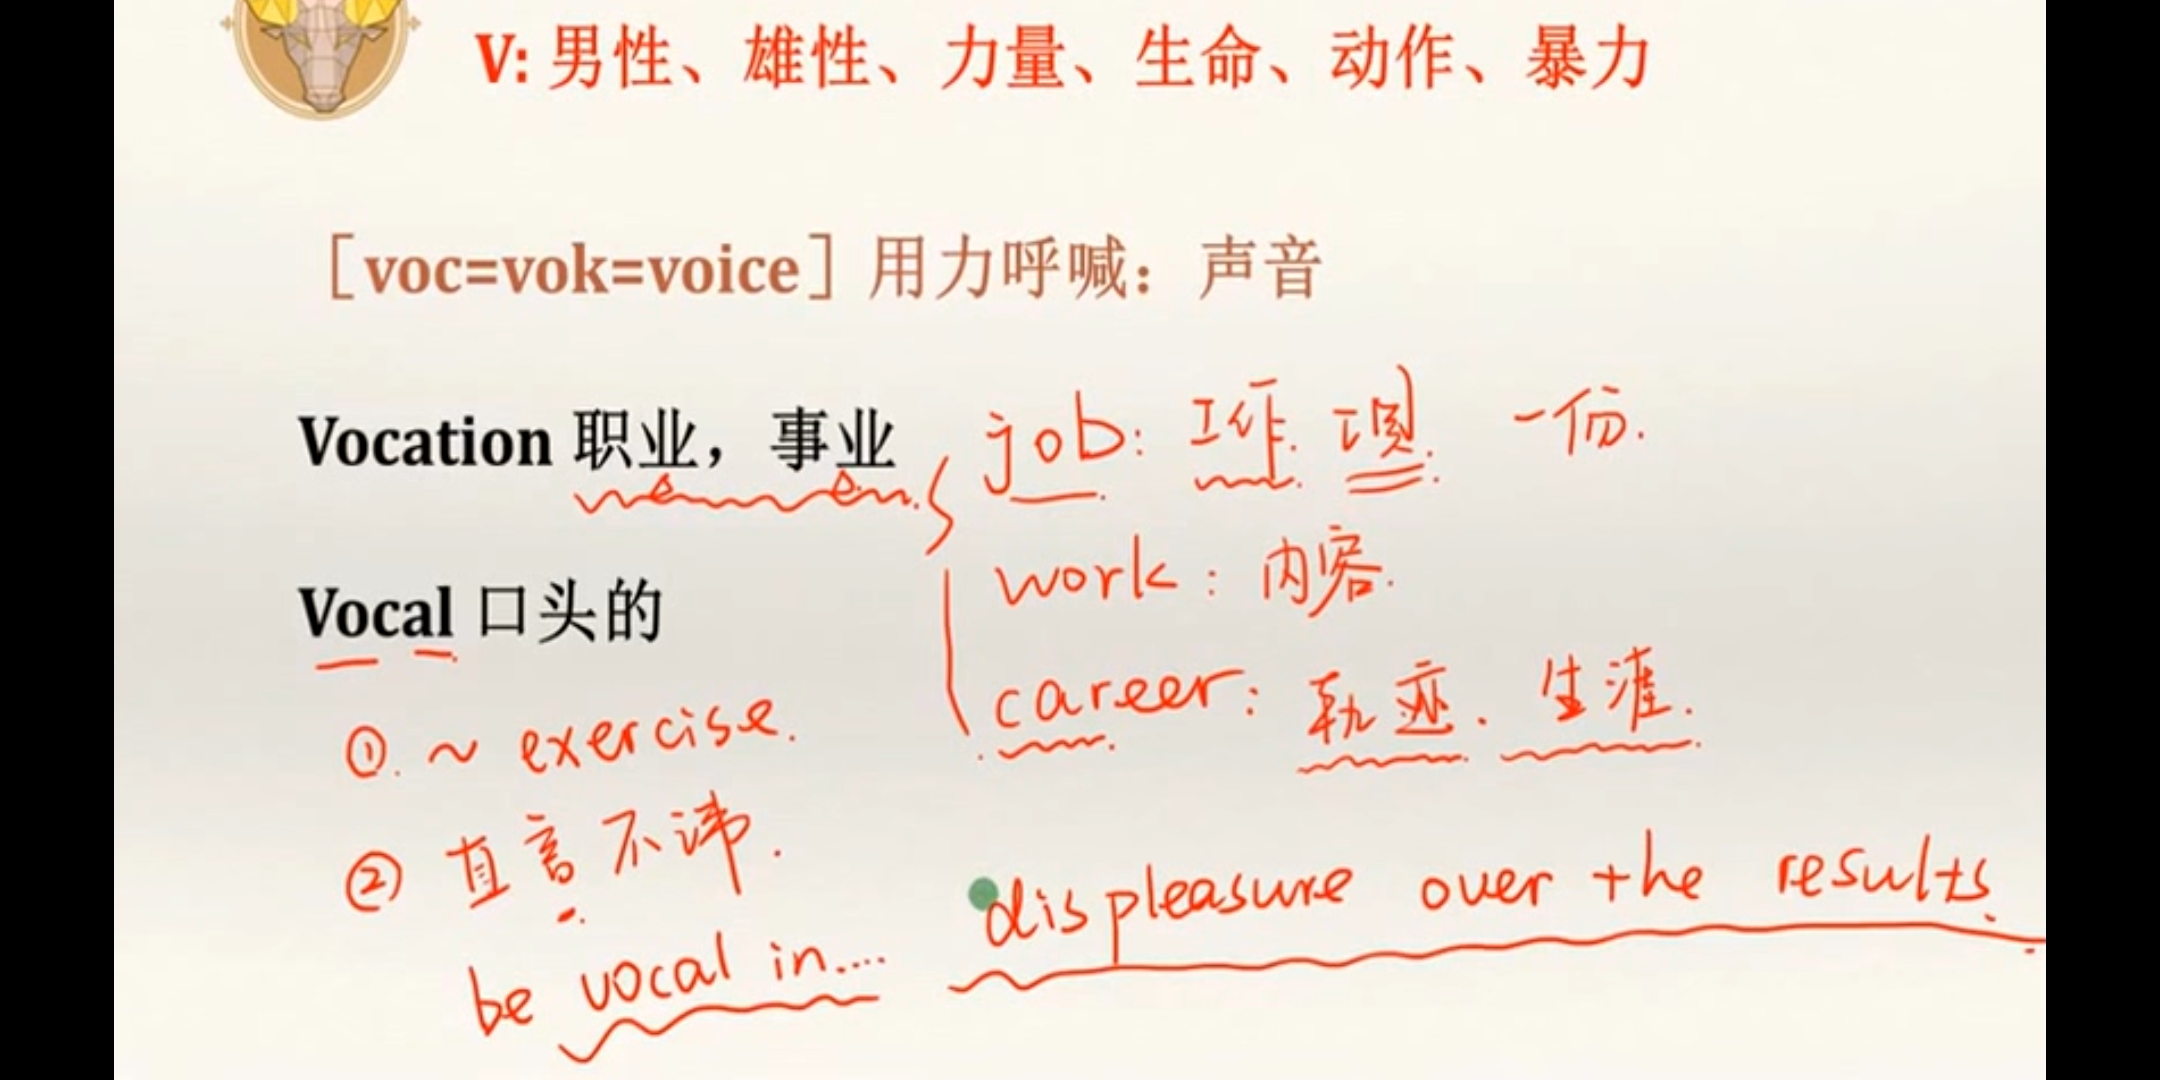 V: 男性、雄性、力量、生命、动作、暴力
［voc=vok=voice］用力呼喊：声音
Vocation 职业，事业
job: 工作. 项. 一份.
work: 内容.
career: 轨迹. 生涯.
Vocal 口头的
①. ~ exercise.
② 直言不讳.
be vocal in.... displeasure over the results.